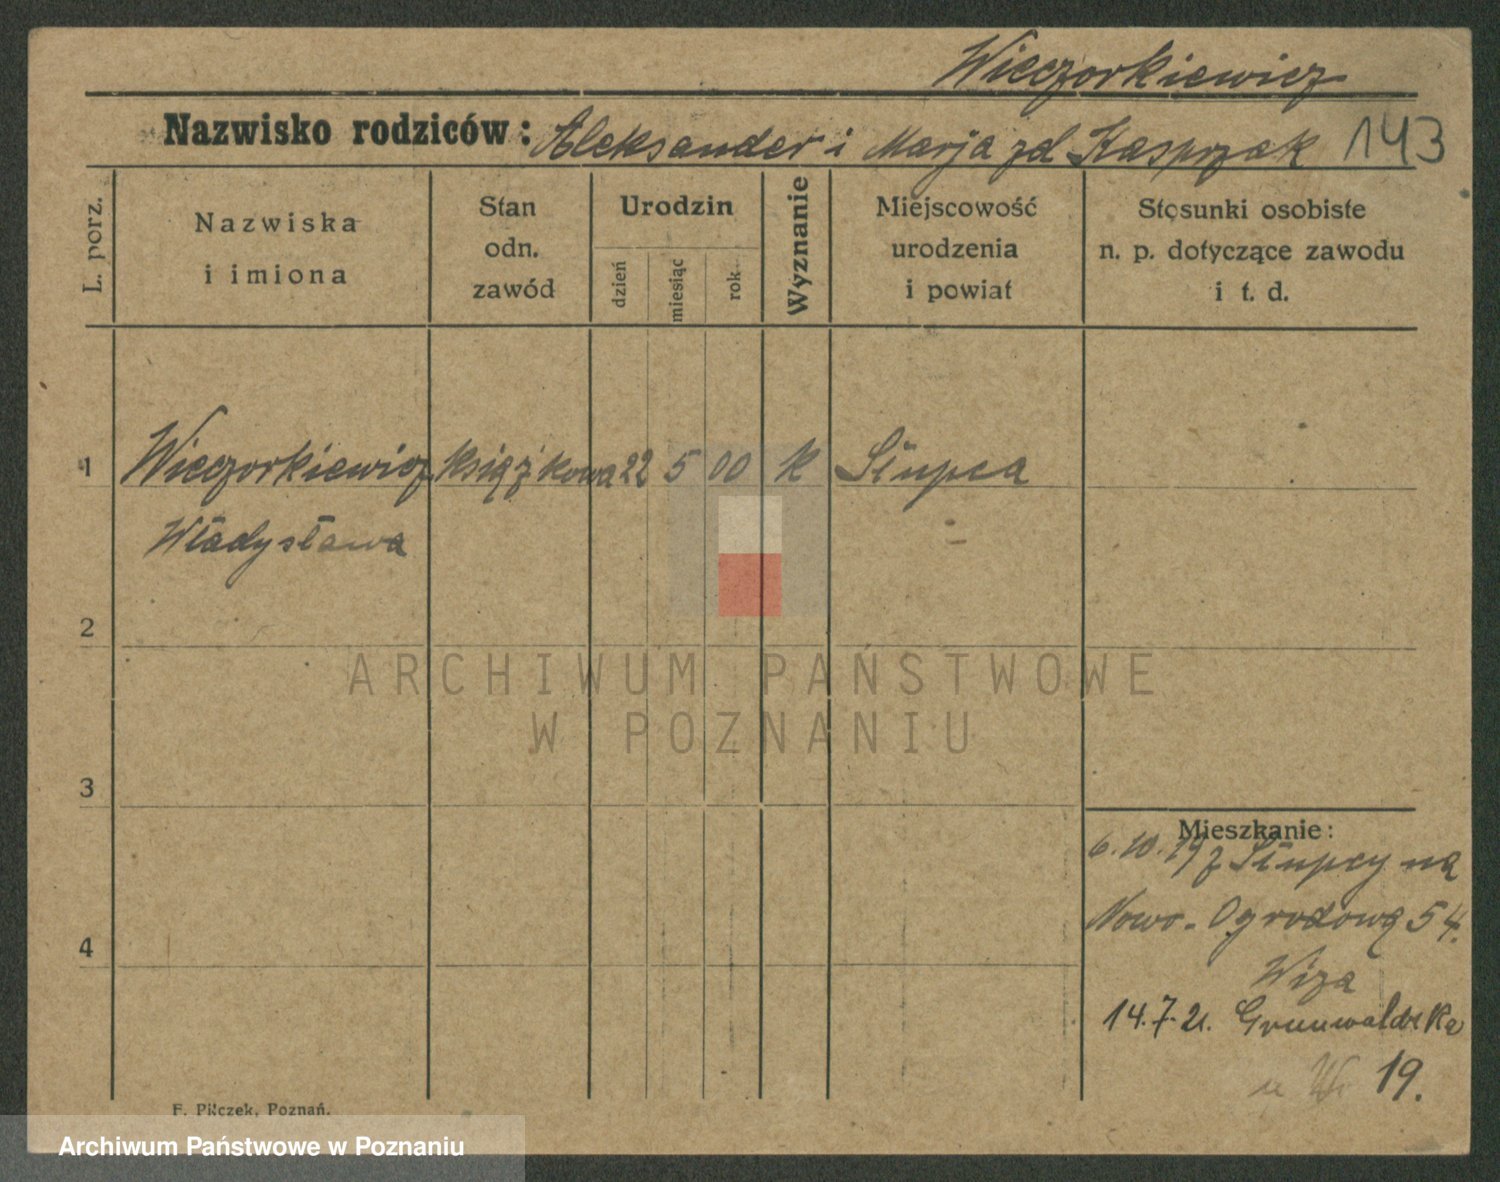 Wieczorkiewicz
Nazwisko rodziców: Aleksander i Marja zd Kasprzak 143
L. porz.
Nazwiska
i imiona
Stan
odn.
zawód
Urodzin
dzień
miesiąc
rok
Wyznanie
Miejscowość
urodzenia
i powiat
Stosunki osobiste
n. p. dotyczące zawodu
i t. d.
1 Wieczorkiewicz książkowa 22 5 00 k Słupca
Władysława
2
3
4
ARCHIWUM PAŃSTWOWE
W POZNANIU
Mieszkanie:
6.10.19 z Słupcy na
Nowo-Ogrodową 54.
Wiza
14.7.21. Grunwaldzka
u 19.
F. Pilczek, Poznań.
Archiwum Państwowe w Poznaniu